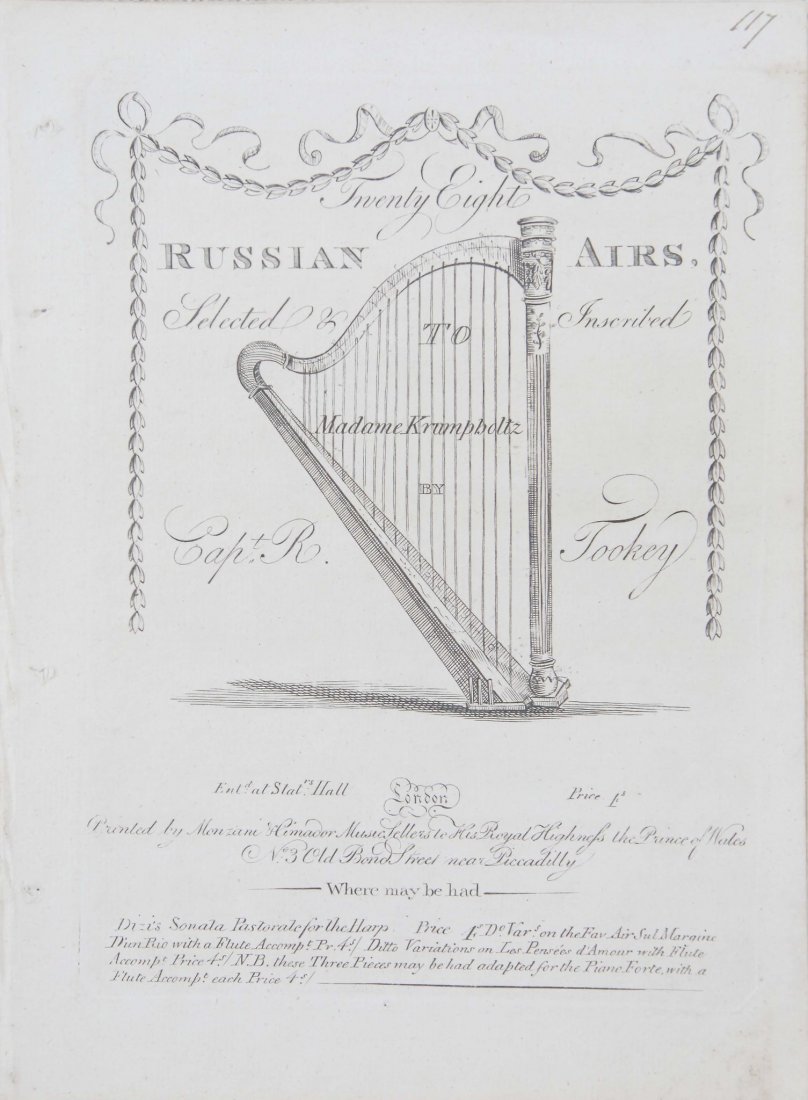 117
Twenty Eight
RUSSIAN AIRS,
Selected & Inscribed
TO
Madame Krumpholtz
BY
Capt. R. Tookey
Entd. at Statrs. Hall London Price 4s
Printed by Monzani & Cimador Music Sellers to His Royal Highness the Prince of Wales
No. 3 Old Bond Street near Piccadilly
Where may be had
Dizi's Sonata Pastorale for the Harp Price 4s Do. Vars. on the Fav. Air Sul Margine
D'un Rio with a Flute Accompt. Pr. 4s/ Ditto Variations on Les Pensées d'Amour with Flute
Accompt. Price 4s/ N.B. these Three Pieces may be had adapted for the Piano Forte, with a
Flute Accompt. each Price 4s/